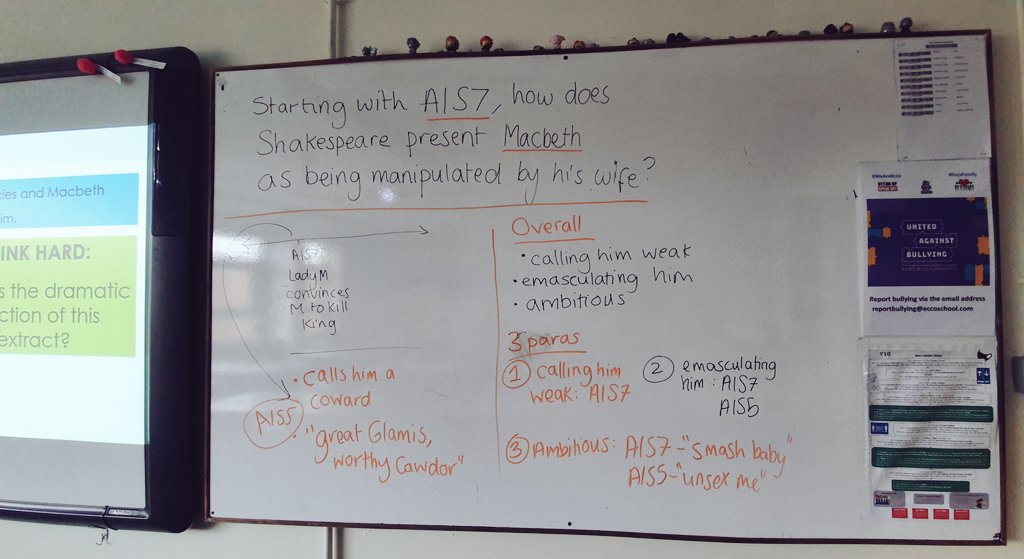 cies and Macbeth
im.
INK HARD:
s the dramatic
ction of this
extract?
Starting with A1S7, how does
Shakespeare present Macbeth
as being manipulated by his wife?
A1S7
Lady M
convinces
M to kill
King
• calls him a
coward
A1S5
• "great Glamis,
worthy Cawdor"
Overall
• calling him weak
• emasculating him
• ambitious
3 paras
① calling him
weak: A1S7
② emasculating
him: A1S7
A1S5
③ Ambitious: A1S7-"smash baby"
A1S5-"unsex me"
#WeAreEcco
#EccoFamily
UNITED
AGAINST
BULLYING
Report bullying via the email address
reportbullying@eccoschool.com
Y10